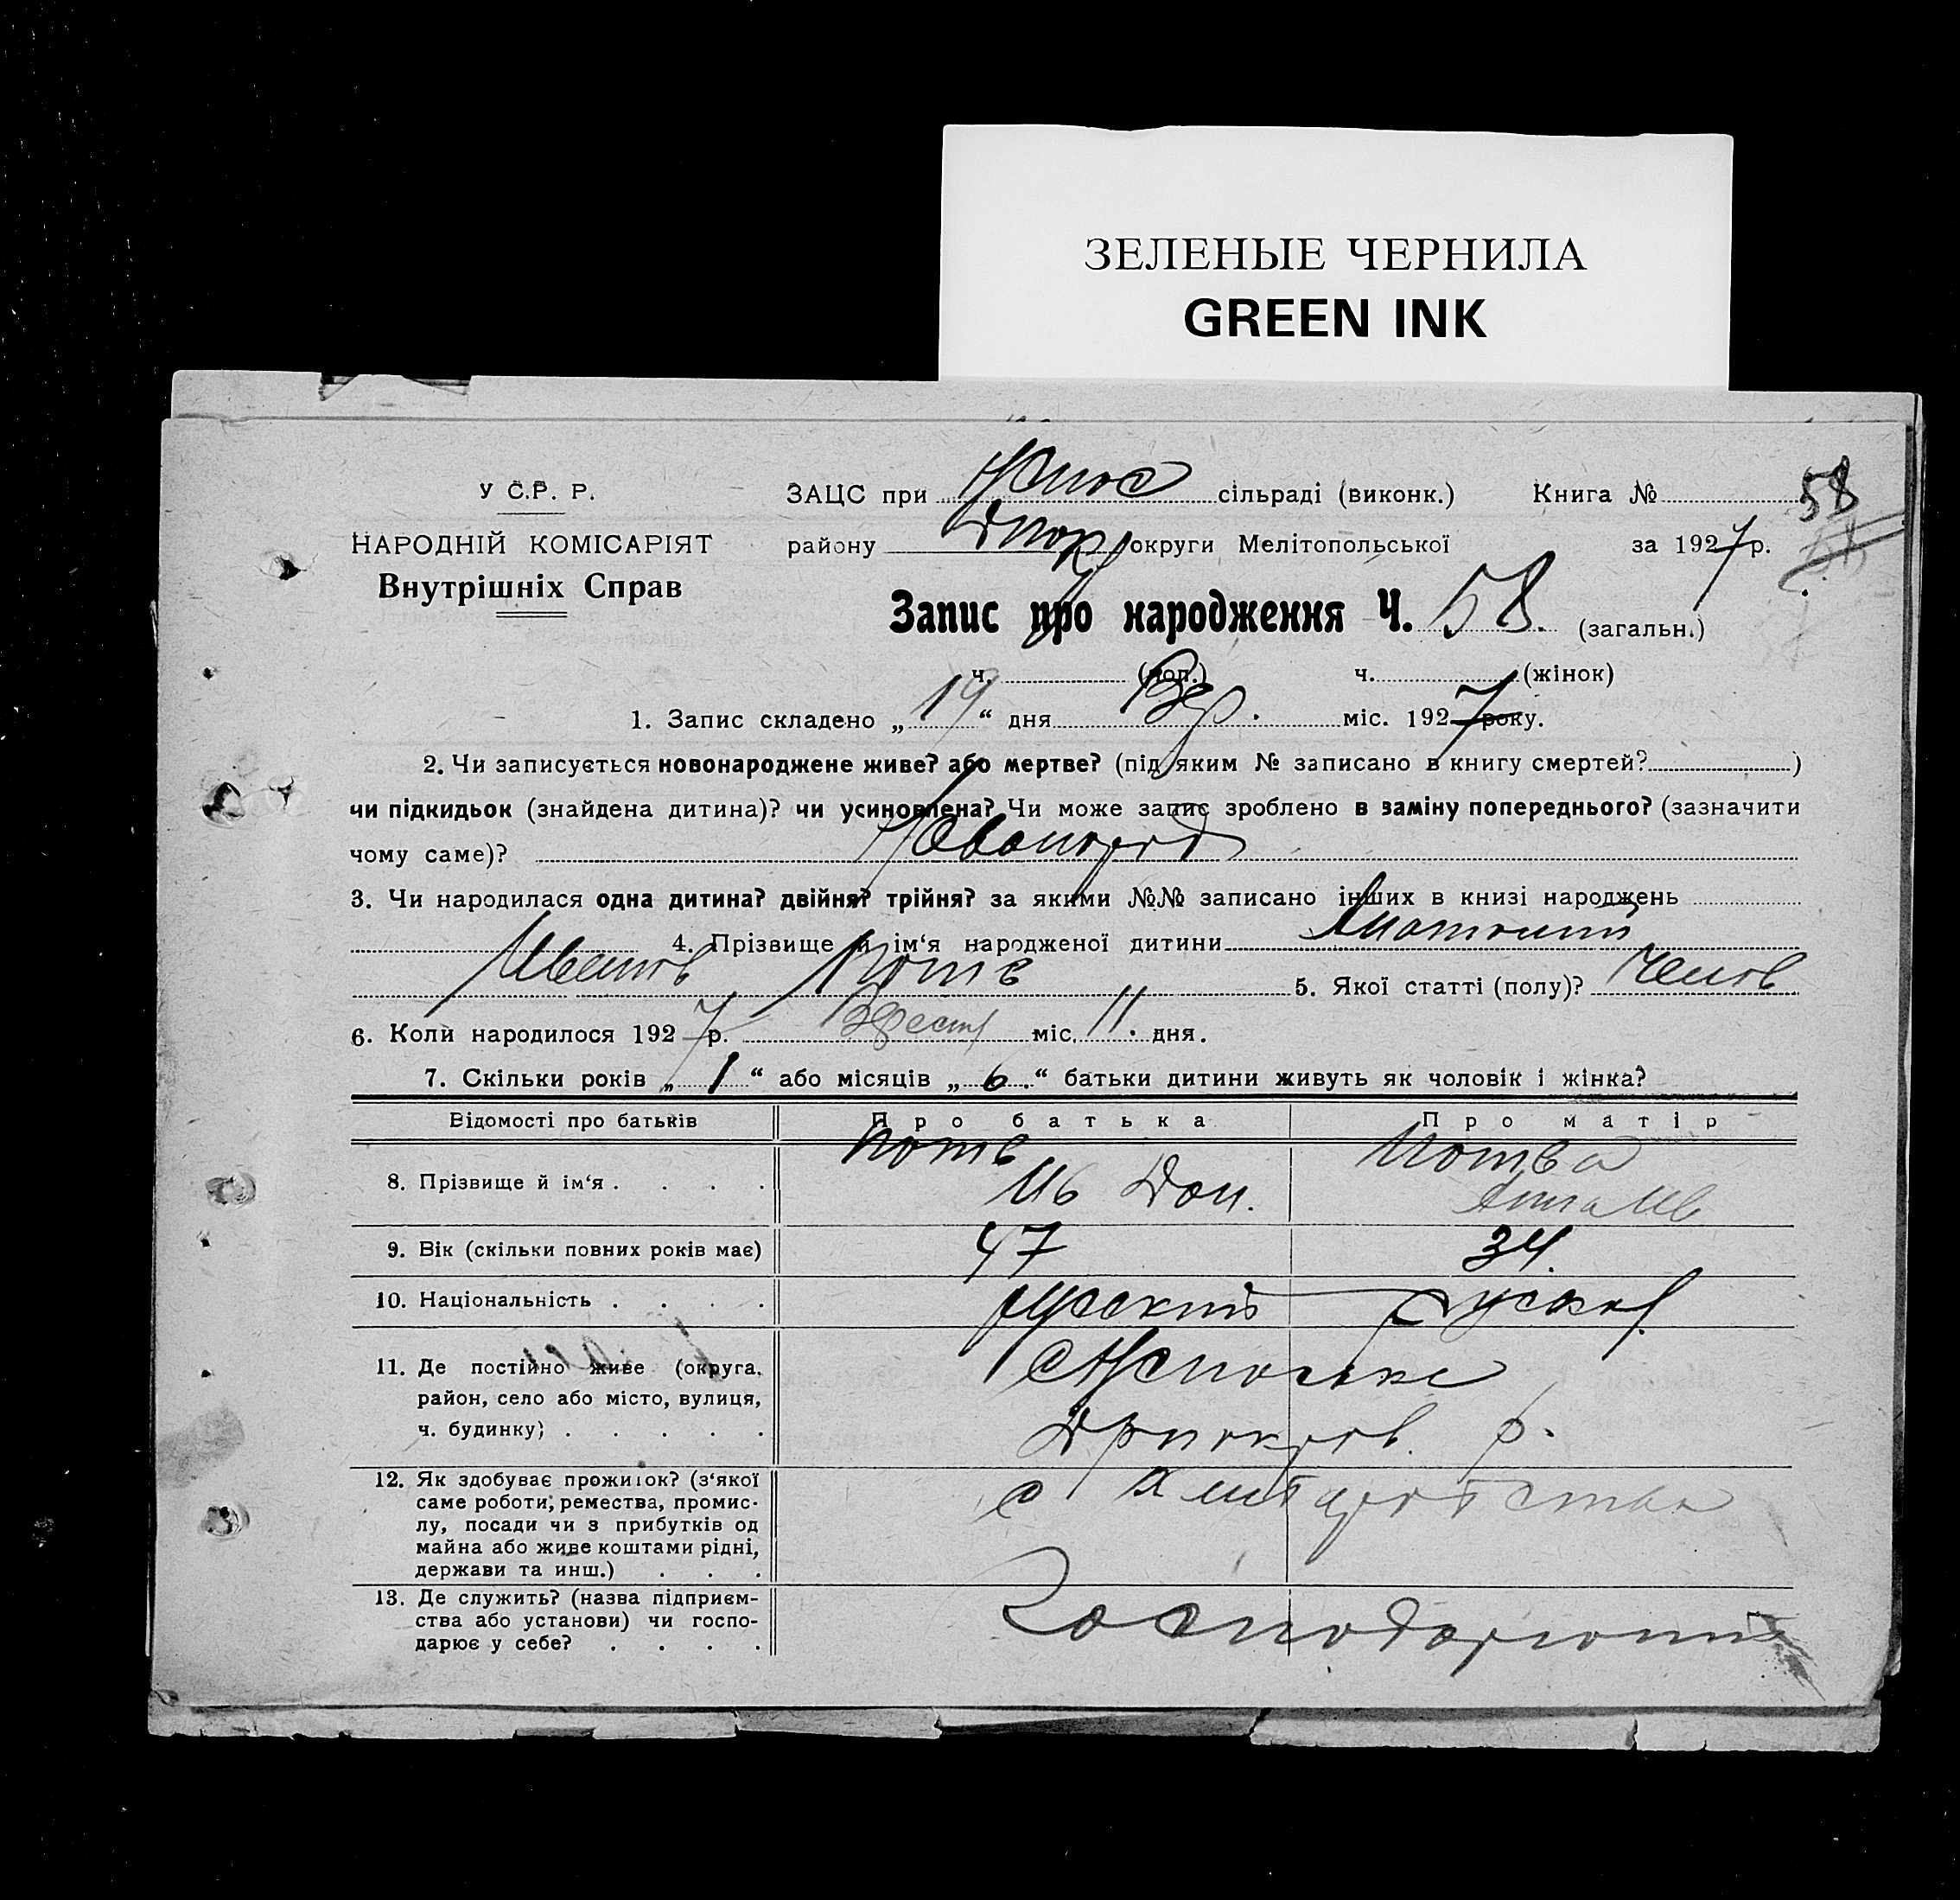 ЗЕЛЕНЫЕ ЧЕРНИЛА
GREEN INK
У С.Р. Р.
НАРОДНІЙ КОМІСАРІЯТ
Внутрішніх Справ
ЗАЦС при сільраді (виконк.) Книга № 58
району округи Мелітопольської за 1927 р.
Запис про народження Ч. 58. (загальн.)
ч. (чол.) ч. (жінок)
1. Запис складено „19“ дня Вер. міс. 1927 року.
2. Чи записується новонароджене живе? або мертве? (під яким № записано в книгу смертей? )
чи підкидьок (знайдена дитина)? чи усиновлена? Чи може запис зроблено в заміну попереднього? (зазначити
чому саме)?
3. Чи народилася одна дитина? двійня? трійня? за якими №№ записано інших в книзі народжень
4. Прізвище й ім‘я народженої дитини
5. Якої статті (полу)? Чолов
6. Коли народилося 1927 р. міс. 11. дня.
7. Скільки років „ 1 “ або місяців „ 6. “ батьки дитини живуть як чоловік і жінка?
Відомості про батьків Про батька Про матір
8. Прізвище й ім‘я . . . .
Ив
9. Вік (скільки повних років має) 47 34.
10. Національність . . . . русский
11. Де постійно живе (округа,
район, село або місто, вулиця,
ч. будинку) . . . . . р.
12. Як здобуває прожиток? (з‘якої
саме роботи, ремества, промис-
лу, посади чи з прибутків од
майна або живе коштами рідні,
держави та инш.) . . .
13. Де служить? (назва підприєм-
ства або установи) чи госпо-
дарює у себе? . . . .